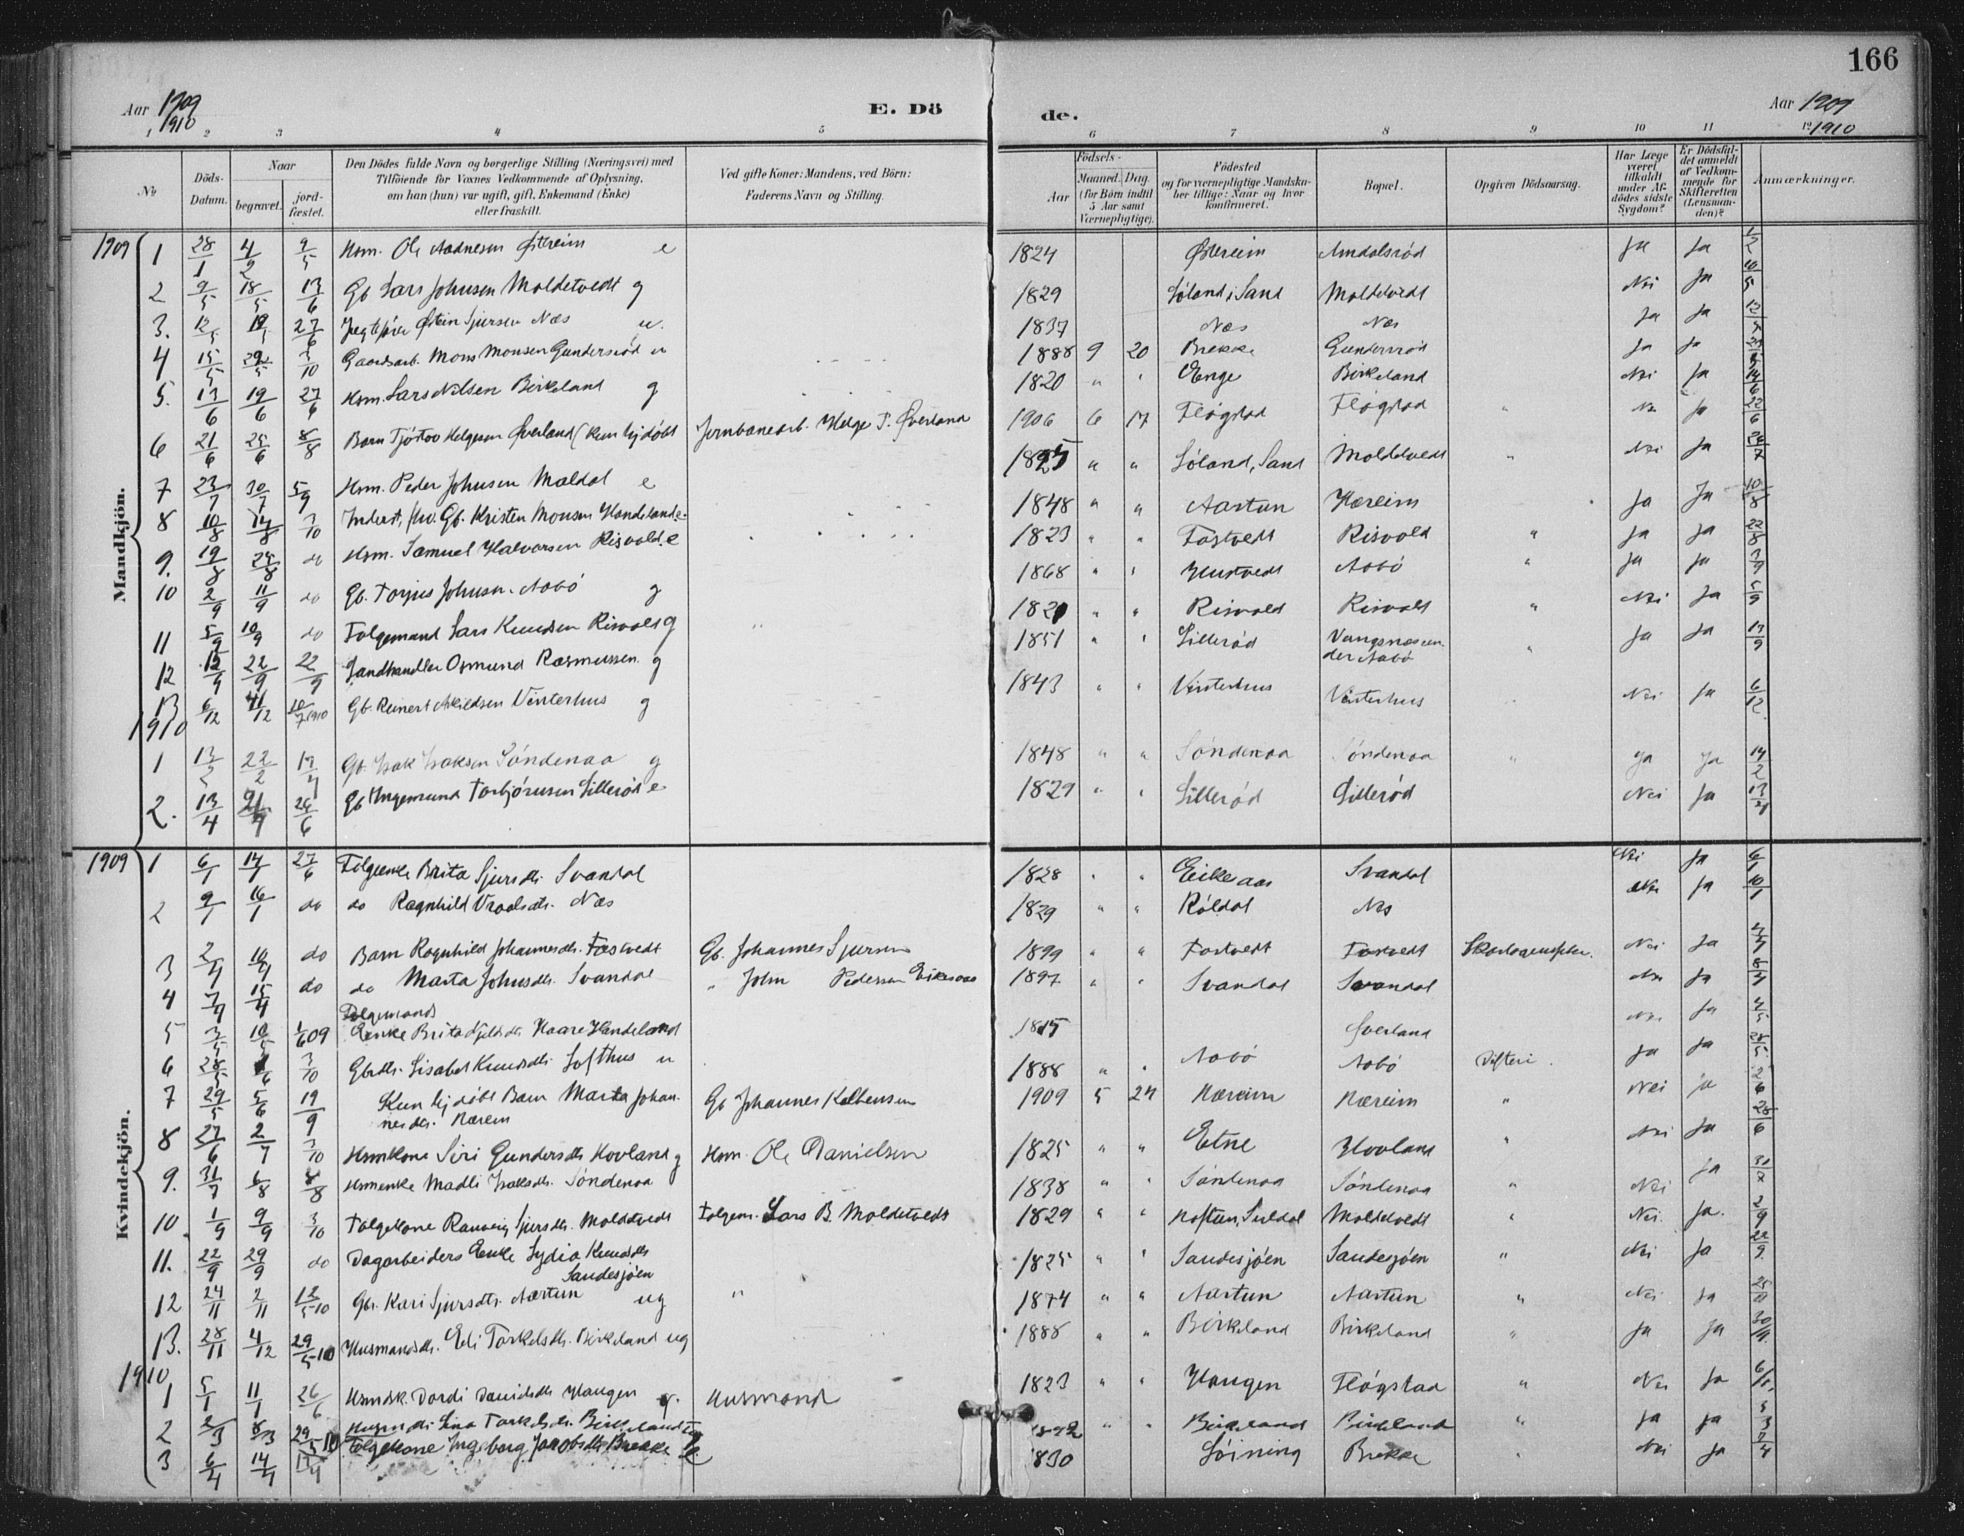 166
Aar 1909 1910
E. Dö
de.
Aar 1909 1910
1 2 3 4 5 6 7 8 9 10 11 12
No
Döds-Datum.
Naar
begravet.
jord-fæstet.
Den Dödes fulde Navn og borgerlige Stilling (Næringsvei) med
Tilföiende for Voxnes Vedkommende af Oplysning,
om han (hun) var ugift, gift, Enkemand (Enke)
eller fraskilt.
Ved gifte Koner: Mandens, ved Börn:
Faderens Navn og Stilling.
Födsels-
Aar
Maaned. Dag
(for Börn indtil
5 Aar samt
Værnepligtige).
Födested
og for værnepligtige Mandska-
ber tillige: Naar og hvor
konfirmeret.
Bopæl.
Opgiven Dödsaarsag.
Har Læge
været
tilkaldt
under Af-
dödes sidste
Sygdom?
Er Dödsfal-
det anmeldt
af Vedkom-
mende for
Skifteretten
(Lensman-
den)?
Anmærkninger.
Mandkjön.
1909 1 28/1 4/2 9/5 Hsm. Ole Aadnesen Østreim e 1824 Østreim Amdalsrød Ja Ja
2 9/5 18/5 13/6 Gb. Lars Johnsen Moldetvedt g 1829 Løland i Sand Moldetvedt Nei Ja 10/5
3. 12/5 19/5 27/6 Østein Sjursen Næs u. 1837 Næs Næs Ja Ja
4 15/5 29/5 3/10 Gaardsarb. Mons Monsen Gundersrød u 1888 9 20 Brekke Gundersrød Ja Ja
5. 13/6 19/6 27/6 Hsm. Lars Nilsen Birkeland g 1820 " " Enge Birkeland Nei Ja 14/6
6 21/6 25/6 8/8 Barn Tjøstov Helgesen Øverland (kun hj.døbt Jernbanearb. Helge T. Øverland 1906 6 17 Fløgstad Fløgstad " Nei Ja 22/6
7 23/7 30/7 5/9 Hsm. Peder Johnsen Maldal e " " Løland, Sand Moldetvedt " Nei Ja
8 10/8 14/8 3/10 Gb. Kristen Monsen Handeland e 1848 " " Aartun Hæreim Ja Ja 10/8
9. 19/8 25/8 do Hsm. Samuel Halvorsen Risvold. e 1823 " " Fostvedt Risvold " Ja Ja 22/8
10 2/9 11/9 do Gb. Torjus Johnsen Aabø g 1868 " " Hustvedt Aabø " Ja Ja 3/9
11 5/9 10/9 do Folgemand Lars Knudsen Risvold g " " Risvold Risvold " Nei Ja 5/9
12 12/9 22/9 22/9 Landhandler Osmund Rasmussen g 1851 " " Lillerød Vangsnæs under Aabø " Ja Ja 13/9
13 6/12 10/7 1910 Gb. Reinert Vinterhus g 1843 " " Vinterhus Vinterhus Nei Ja 6/12.
1910
1 13/2 22/2 Gb. Isak Isaksen Søndenaa g 1848 " " Søndenaa Søndenaa " Ja Ja 14/2
2. 13/4 21/4 26/6 Gb. Ingemund Torbjørnsen Lillerød e 1829 " " Lillerød Lillerød Nei Ja 13/4
Kvindekjön.
1909 1 6/1 14/1 27/6 Folgeenke Brita Sjursdtr. Svandal 1828 " " Eikeaas Svandal Nei Ja 6/1
2 9/1 16/1 do do Ragnhild Vraalsdtr. Næs 1829 " " Røldal Næs Nei Ja 10/1
3 2/4 10/4 do Barn Ragnhild Johannesdtr. Fastvedt Gb. Johannes Sjursen 1899 " " Fostvedt Fostvedt Skarlagensfeber. Nei Ja
4 7/4 15/4 do do Marta Johnsdtr. Svandal " John Pedersen Eikeaas 1897 " " Svandal Svandal Nei Ja 8/4
5 3/5 10/5 1/6 09 Folgemands Enke Brita Handeland 1815 Øverland Nei Ja 4/5
6 28/5 3/10 Gbrdtr. Lisabet Knudsdtr. Lofthus u 1888 " " Aabø Aabø Difteri. Ja Ja 28/5
7 29/5 5/6 19/9 Kun hj.døbt Barn Marta Johan-
nesdtr. Næreim Gb. Johannes Kolbensen 1909 5 24 Næreim Næreim " Nei ja 2/6
8 27/6 2/7 3/10 Hsmkone Siri Gundersdtr. Hovland g Hsm. Ole Danielsen 1825 " " Etne Hovland " Nei Ja 28/6
9. 31/7 6/8 8/8 Hsmenke Madli Isaksdtr. Søndenaa 1838 " " Søndenaa Søndenaa " Nei Ja 31/7
10. 1/9 9/9 3/10 Folgekone Ranveig Sjursdtr. Moldetvedt Folgem. Lars B. Moldetvedt 1829 " " Suldal Moldetvedt " Nei Ja. 2/9
11. 22/9 29/9 do Dagarbeiders Enke Lydia Knudsdtr
Sandesjøen 1825 " " Sandesjøen Sandesjøen " Nei Ja 22/9
12 24/11 2/11 12/5-10 Gbr. Kari Sjursdtr. Aartun ug " 1874 " " Aartun Aartun " Nei Ja 25/11
13. 28/11 4/12 29/5-10 Husmandsdtr. Eli Torkelsdtr. Birkeland ug 1888 " " Birkeland Birkeland " Ja Ja 30/11
1910
1 5/1 11/1 26/6 Hsmdsk. Dordi Davidsdtr Haugen g. Husmand 1823 " " Haugen Fløgstad " Nei Ja 6/1
2 2/3 8/3 29/5-10 Lina Torkelsdtr. Birkeland 1892 " " Birkeland Birkeland " Ja Ja 5/3
3 6/4 14/4 17/4 Folgekone Ingeborg Jacobsdtr Brekke 1830 Brekke Nei Ja 7/4